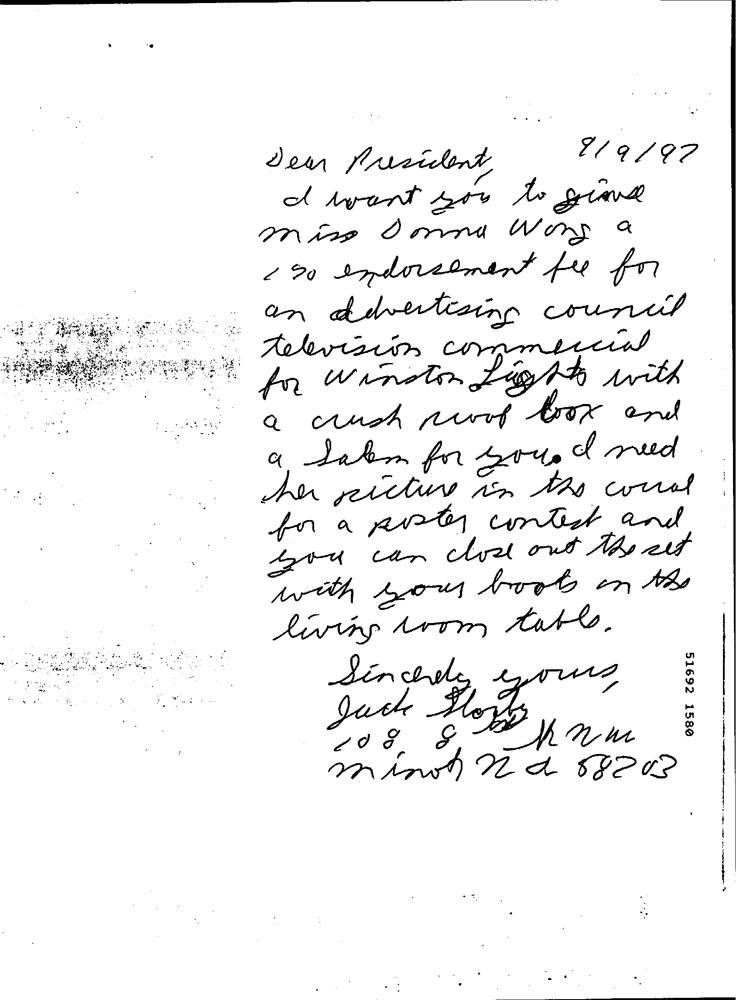 9/9/97
Dear President,
I want you to give
Miss Donna Wong a
endorsement fee for
an advertising council
television commercial
for Winston Lights with
a crush proof box and
a Salem for you. I need
her picture in the corral
for a poster contest and
you can close out the set
with your boots on the
living room table.
Sincerely yours,
Jack
108 8
Minot N d 58203
51692 1580